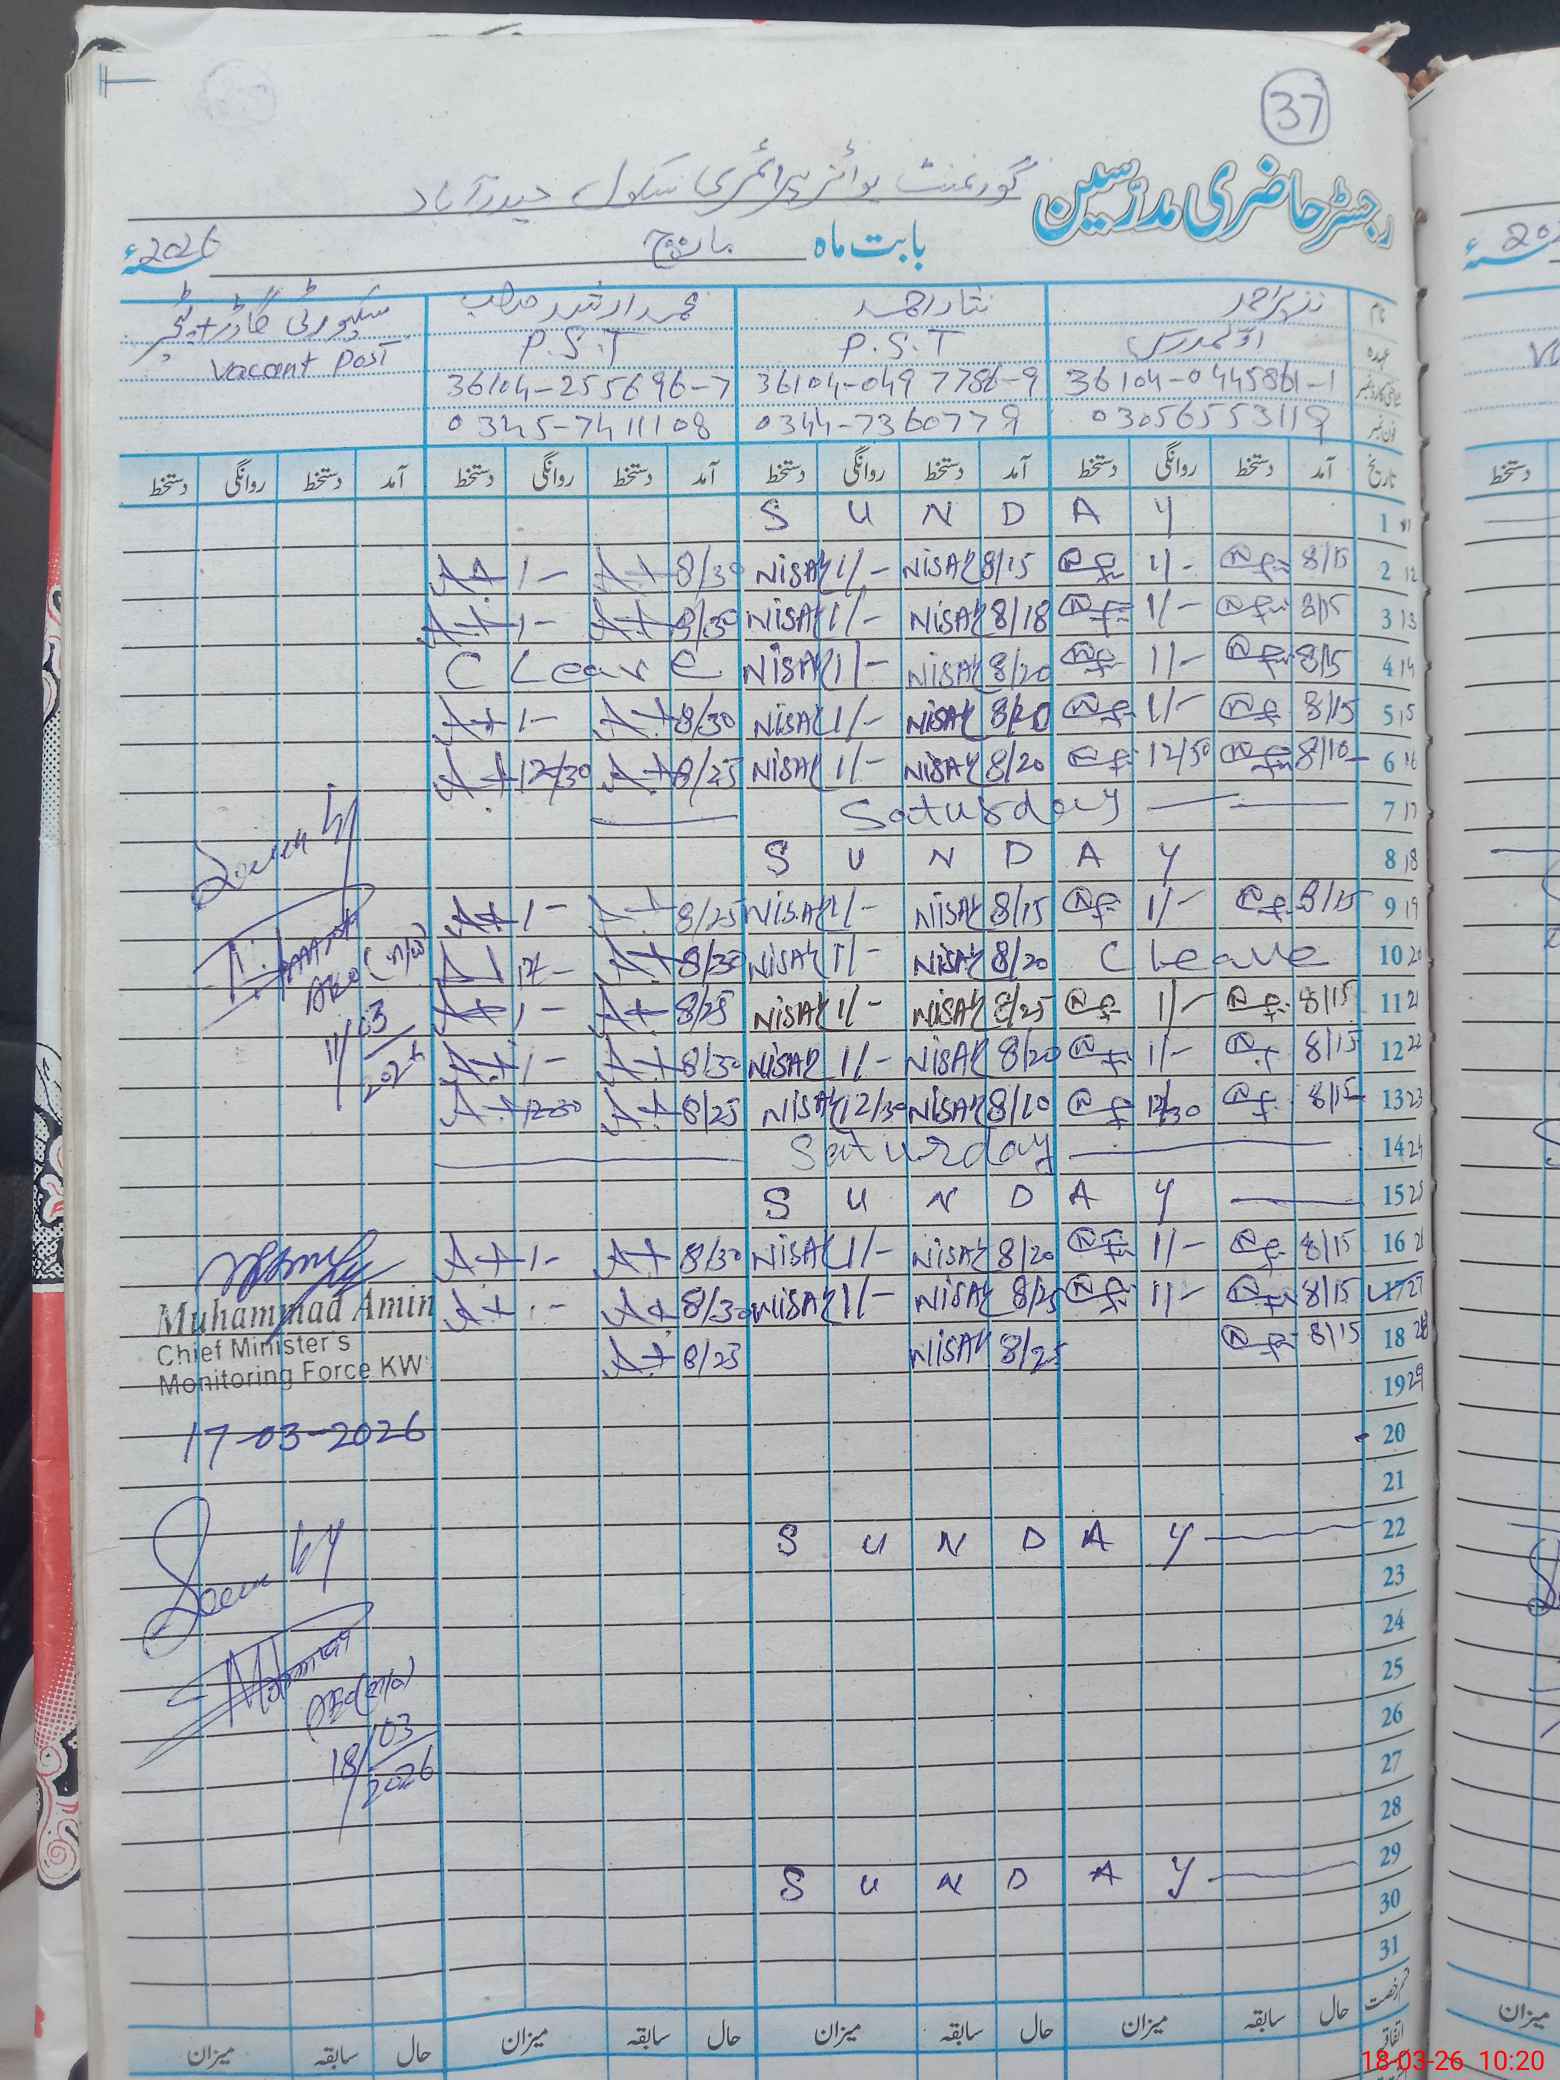 37
رجسٹر حاضری مدرسین گورنمنٹ بوائز پرائمری سکول حیدرآباد
بابت ماہ مارچ 2026ء
نام نذیر احمد نثار احمد محمد ارشد سیکیورٹی گارڈ
عہدہ P.S.T P.S.T Vacant Post
شناختی کارڈ نمبر 36104-0445861-1 36104-0497786-9 36104-255696-7
فون نمبر 03056553119 0344-7360779 0345-7411108
تاریخ آمد دستخط روانگی دستخط آمد دستخط روانگی دستخط آمد دستخط روانگی دستخط آمد دستخط روانگی دستخط
1 S U N D A Y
2 12 8/15 1/- 8/15 NISAR 1/- NISAR 8/30 1-
3 13 8/15 1/- 8/18 NISAR 1/- NISAR 8/30 1-
4 14 8/15 1/- 8/20 NISAR 1/- NISAR C Leave
5 15 8/15 1/- 8/20 NISAR 1/- NISAR 8/30 1-
6 16 8/10 12/30 8/20 NISAR 1/- NISAR 8/25 12/30
7 17 Saturday
8 18 S U N D A Y
Seen by
9 19 8/15 1/- 8/15 NISAR 1/- NISAR 8/25 1-
10 20 C Leave 8/20 NISAR 1/- NISAR 8/30
11 21 8/15 1/- 8/25 NISAR 1/- NISAR 8/25 1-
11/03/2026
12 22 8/15 1/- 8/20 NISAR 1/- NISAR 8/30 1-
13 23 8/15 12/30 8/10 NISAR 12/30 NISAR 8/25 1230
14 24 Saturday
15 25 S U N D A Y
16 26 8/15 1/- 8/20 NISAR 1/- NISAR 8/30 1-
17 27 8/15 1/- 8/25 NISAR 1/- NISAR 8/30
18 28 8/15 8/25 NISAR 8/25
Muhammad Amin
Chief Minister's
Monitoring Force KW
19 29
17-03-2026
20
21
22 S U N D A Y
Seen by
23
24
25
26
18/03/2026
27
28
29 S U N D A Y
30
31
حال سابقہ میزان حال سابقہ میزان حال سابقہ میزان حال سابقہ میزان
اتفاقی
2026ء
دستخط
میزان
18-03-26 10:20